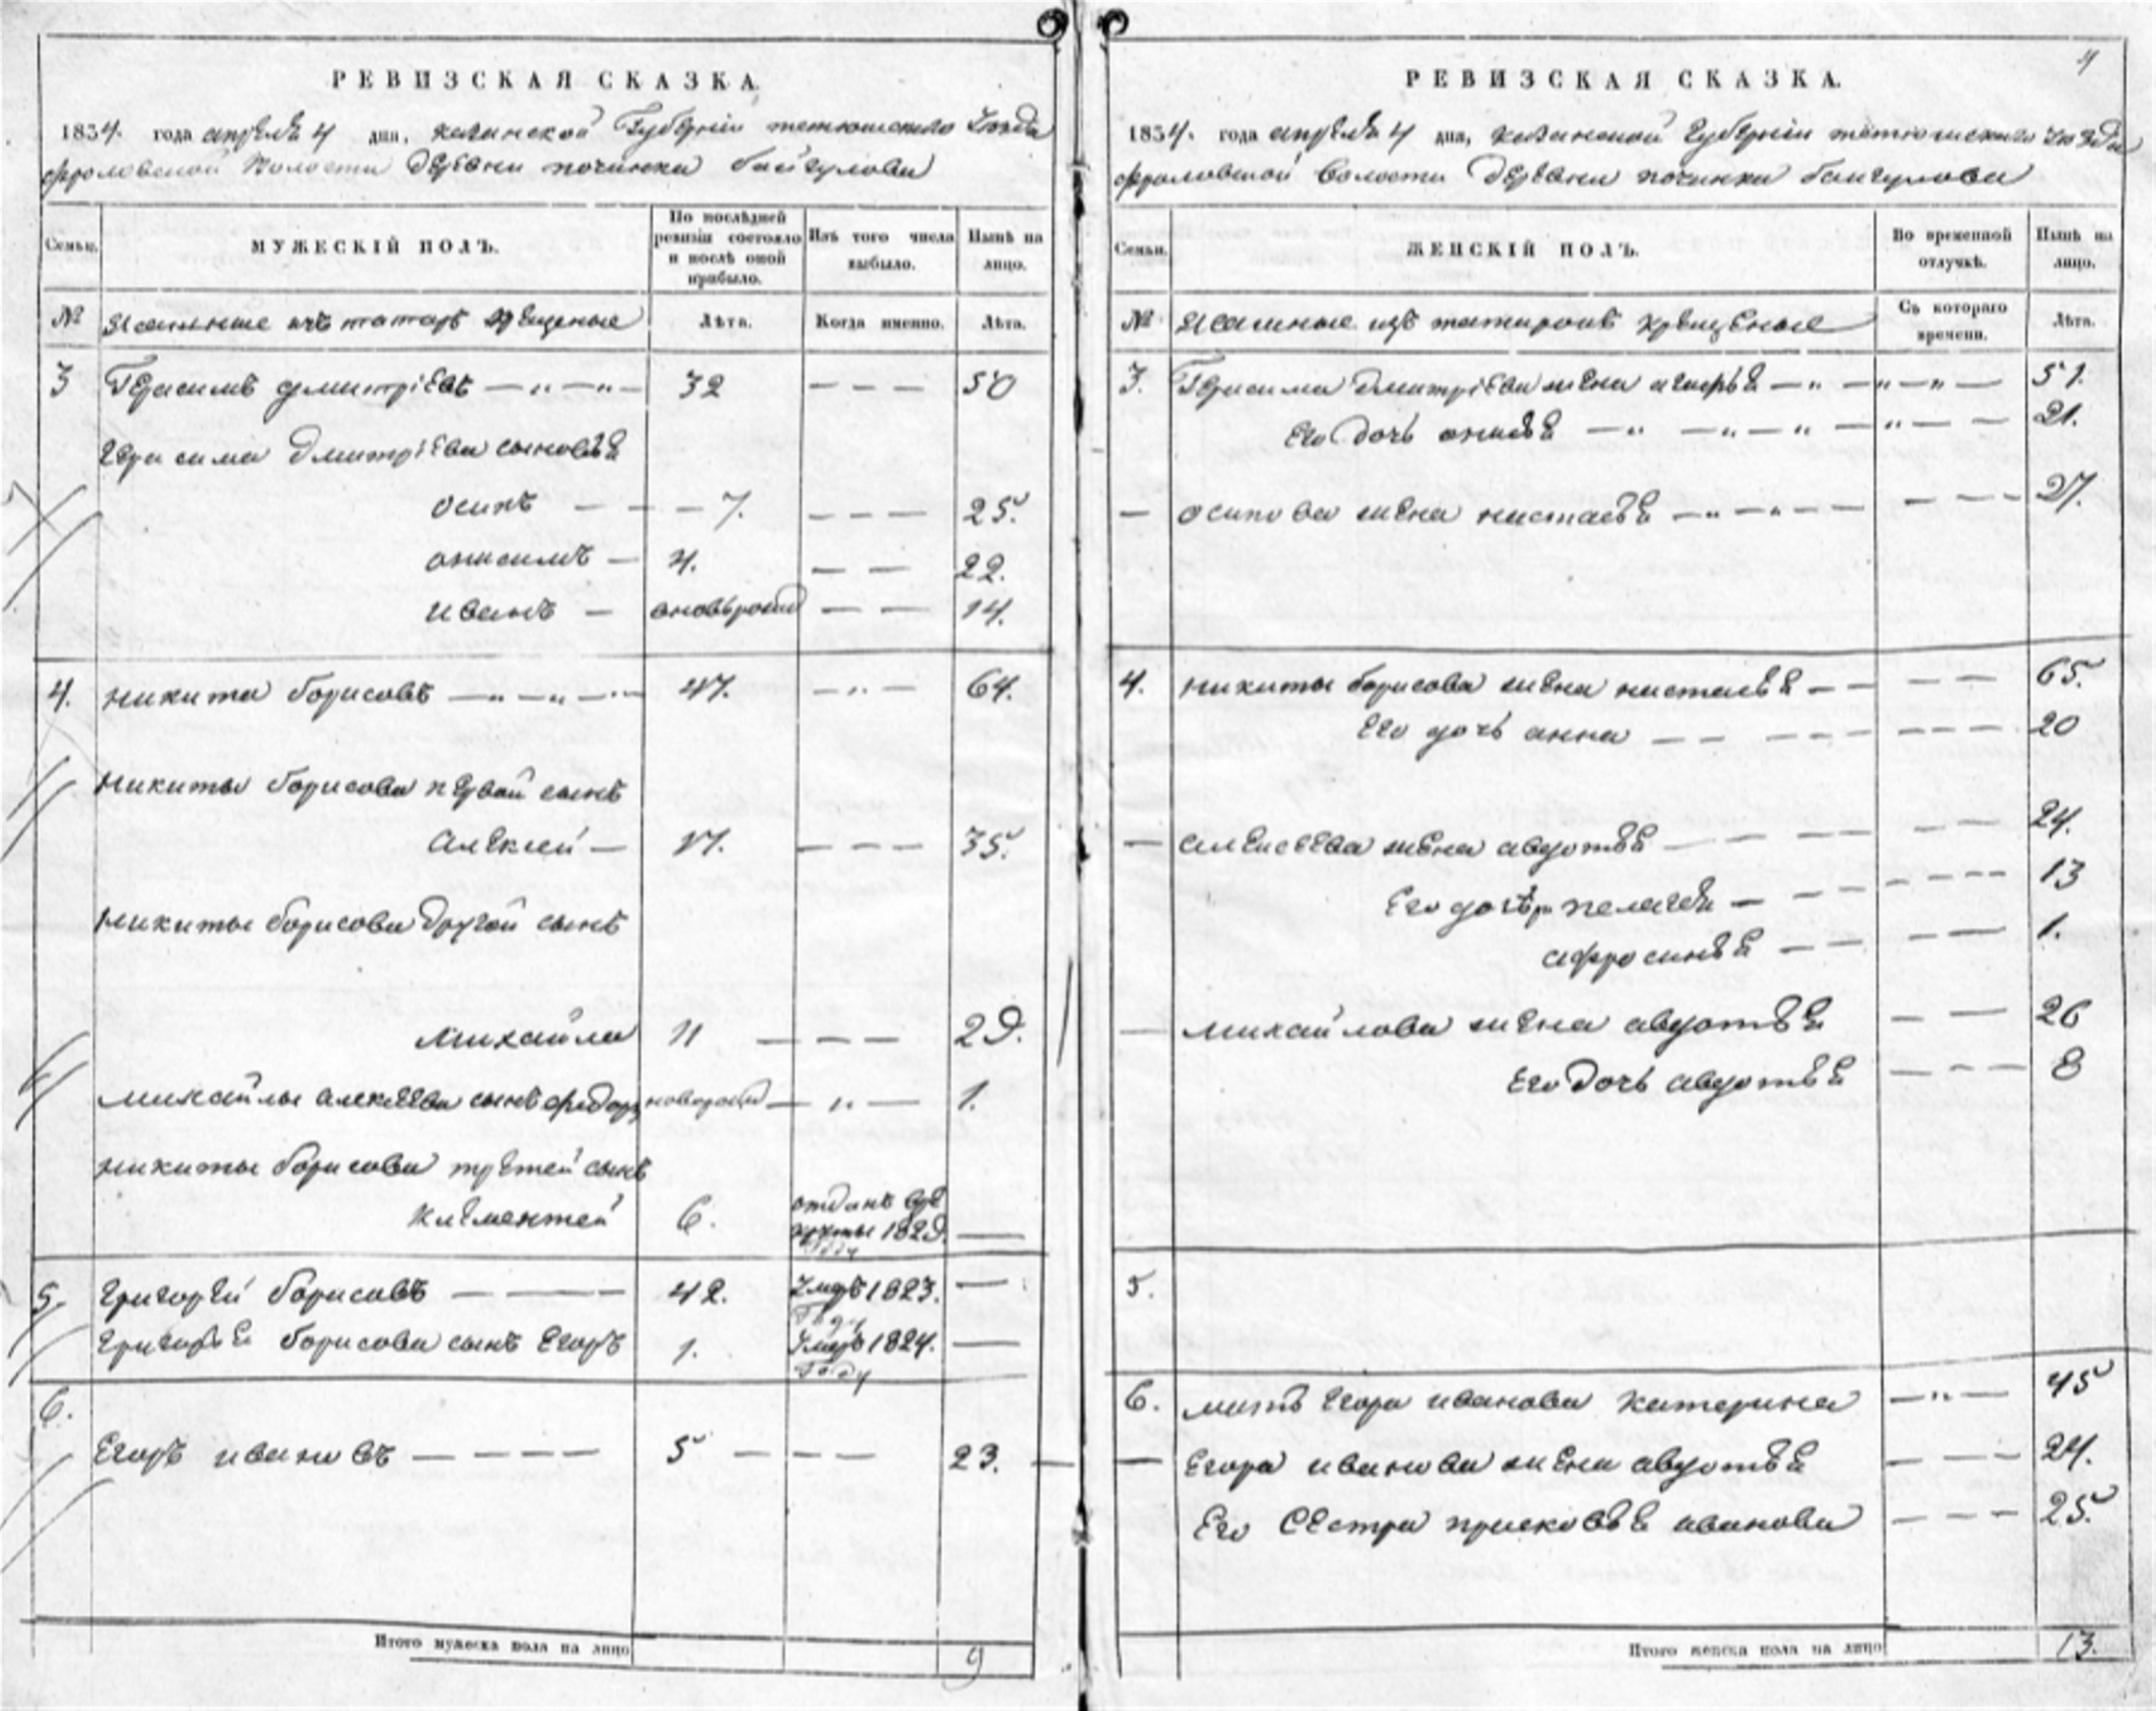 РЕВИЗСКАЯ СКАЗКА.
1834. года апреля 4 дня, казанской Губернии тетюшскаго Уезда
фроловской Волости деревни починка байгулова
Семьи.
МУЖЕСКІЙ ПОЛЪ.
По послѣдней ревизіи состояло и послѣ оной прибыло.
Изъ того числа выбыло.
Нынѣ на лицо.
№
Ясашные изъ татаръ крещеные
Лѣта.
Когда именно.
Лѣта.
3 Герасимъ дмитріевъ — „ — „ — 32 — — — 50
герасима дмитріева сыновья
осипъ — — — 7. — — — 25.
анисимъ — 4. — — 22.
иванъ — вновьрожд — — 14.
4. никита борисовъ — „ — „ — 47. — „ — 64.
никиты борисова первой сынъ
алексей — 17. — — — 35.
никиты борисова другой сынъ
михайла 11 — — — 29.
михайлы алексеева сынъ федоръ новорожд — „ — 1.
никиты борисова третей сынъ
клементей 6. отданъ врекруты 1829. году —
5. григорей борисовъ — — — 42. Умре 1823. Году —
григорья борисова сынъ Егоръ 1. Умре 1824. Году —
6.
Егоръ ивановъ — — — — 5 — — — 23.
Итого мужеска пола на лицо 9
4
РЕВИЗСКАЯ СКАЗКА.
1834. года апреля 4 дня, казанской губерніи тетюшскаго уезда
фроловской Волости деревни починка байгулова
Семьи.
ЖЕНСКІЙ ПОЛЪ.
Во временной отлучкѣ.
Нынѣ на лицо.
№
Ясашные изъ татаровъ крещеные
Съ котораго времени.
Лѣта.
3. Герасима дмитріева жена — „ — „ — „ — 51.
Его дочь — „ — „ — „ — „ — — 21.
— осипова жена настасья — „ — „ — — — — — 27.
4. никиты борисова жена настасья — — — — — 65.
Его дочь анна — — — — — — — — — 20
— алексеева жена авдотья — — — — — — 24.
Его дочери пелагея — — — — — — — 13
афросинья — — — — 1.
— михайлова жена авдотья — — — 26
Его дочь авдотья — — — 8
5.
6. мать Егора иванова катерина — „ — 45
— Егора иванова жена авдотья — — — 24.
Его Сестра прасковья иванова — — — 25.
Итого женска пола на лицо 13.